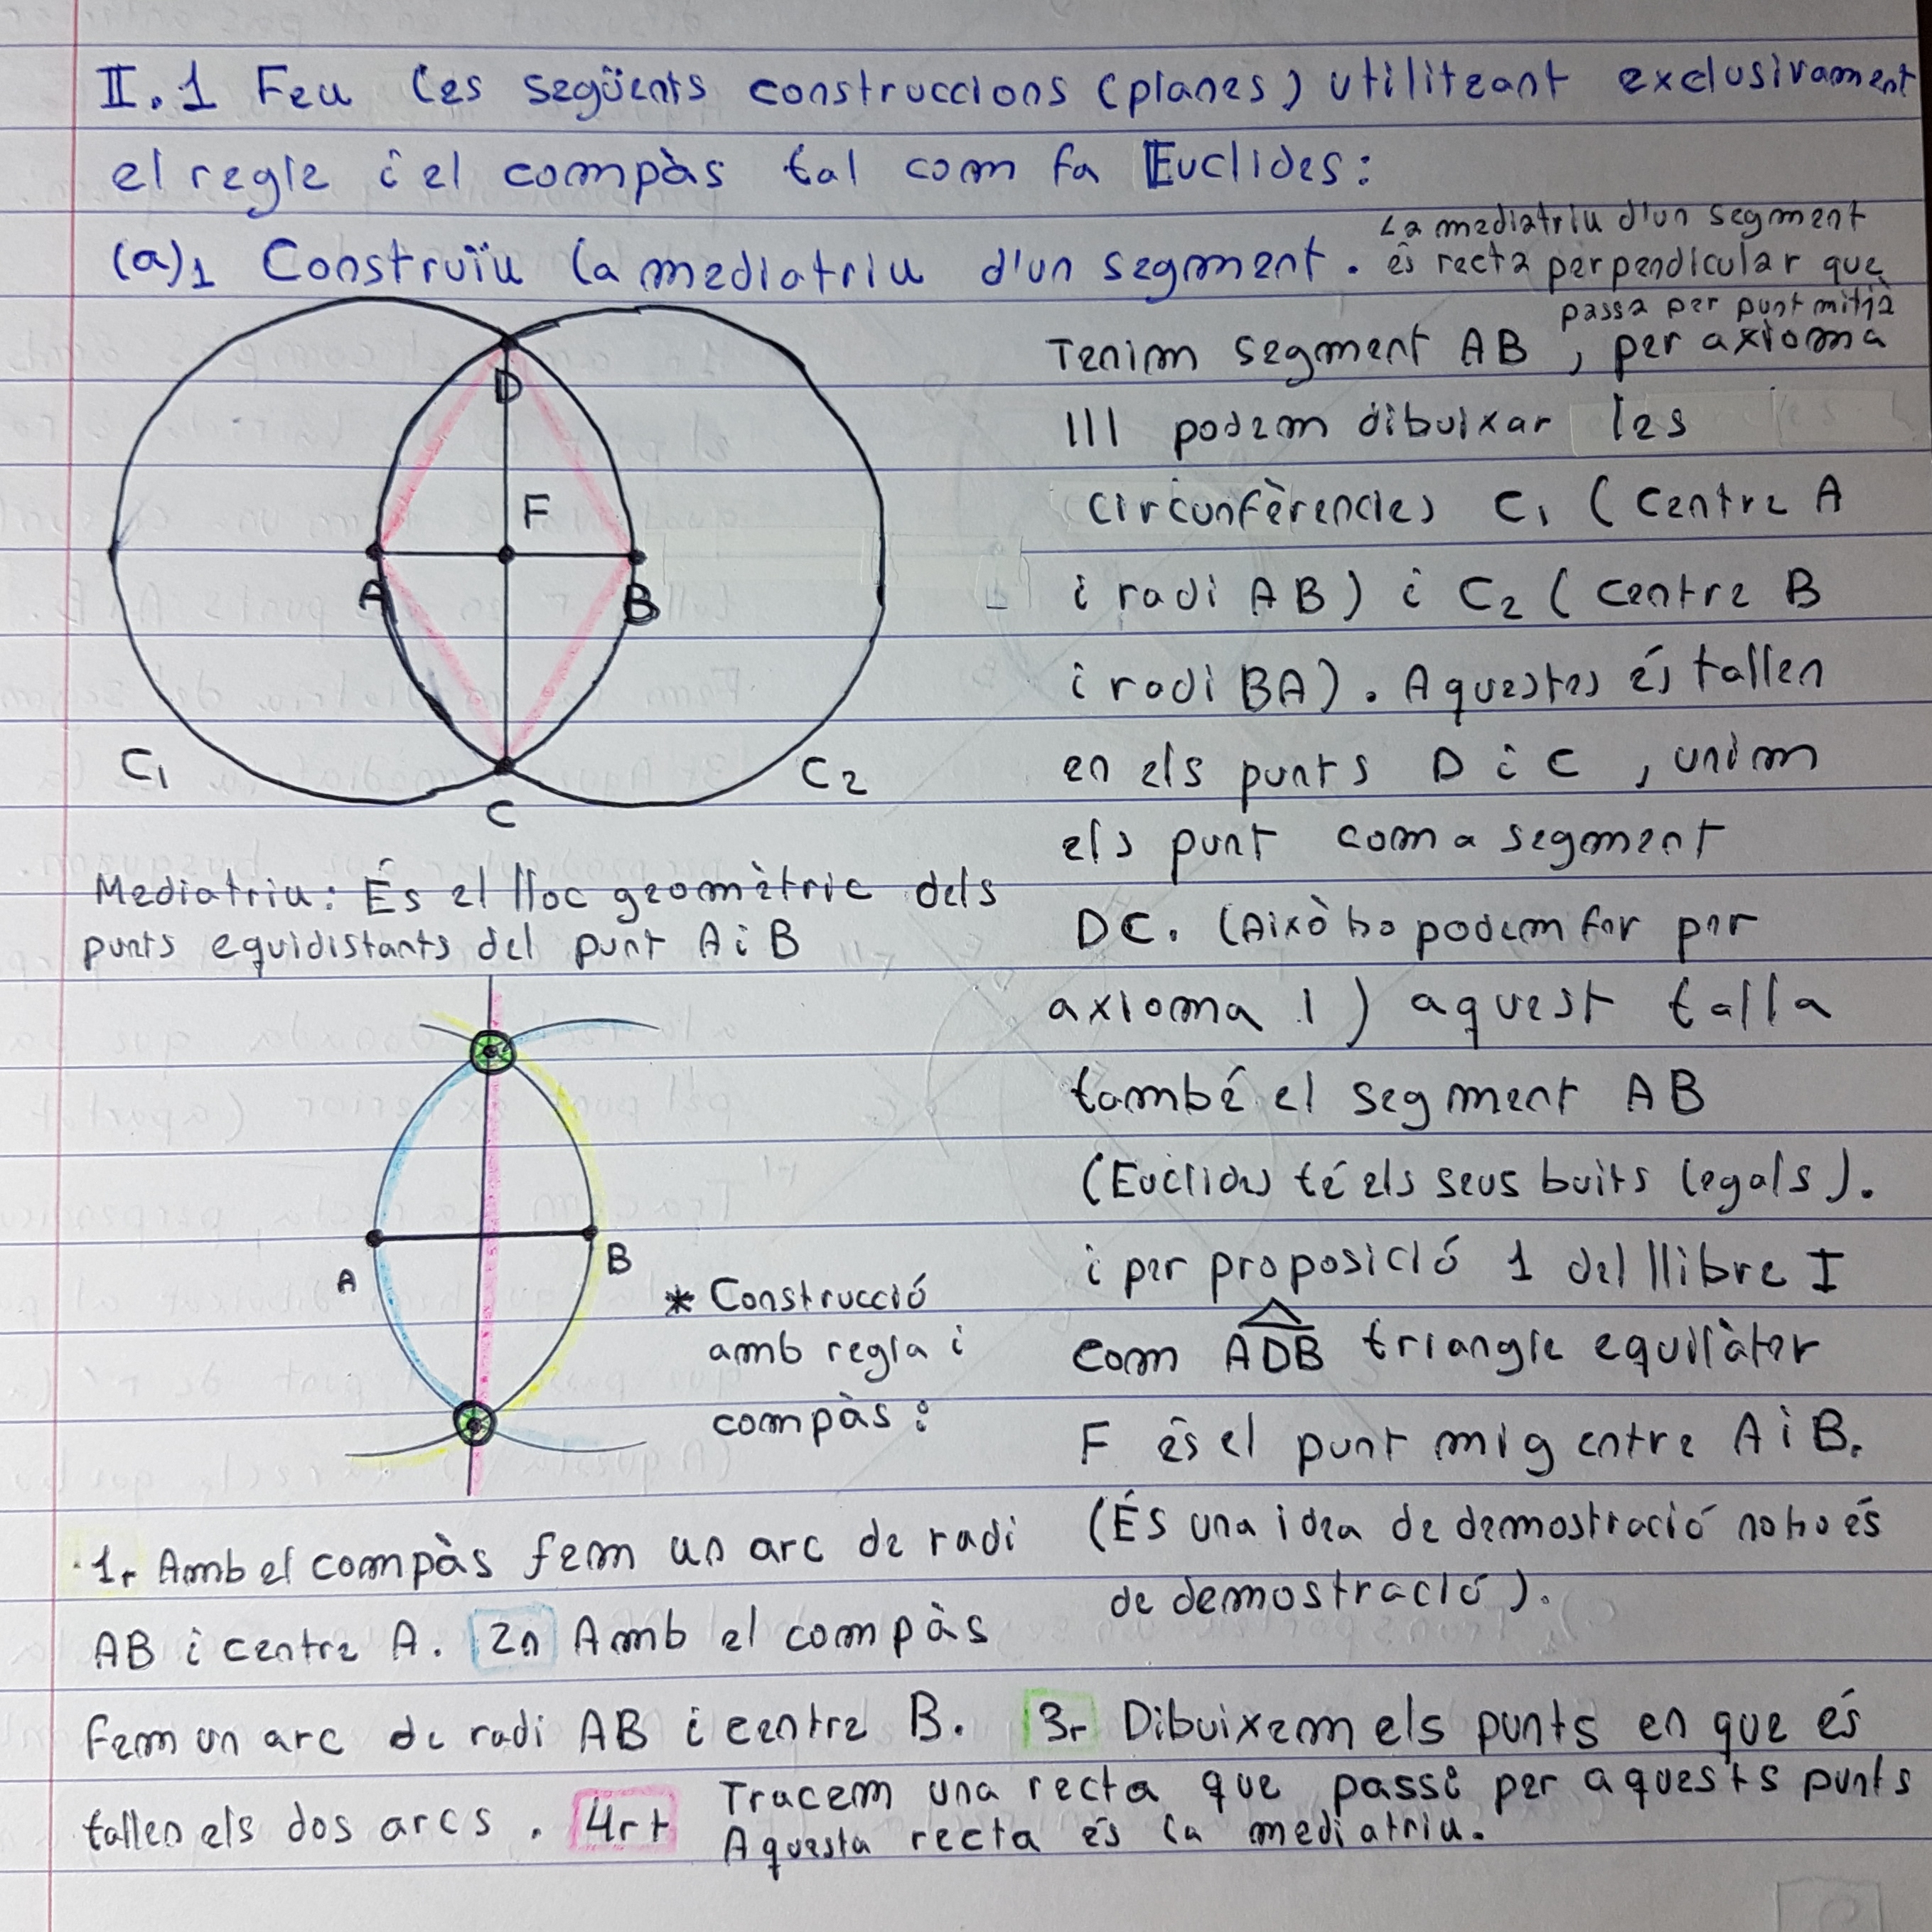 II.1 Feu les següents construccions (planes) utilitzant exclusivament
el regle i el compàs tal com fa Euclides:
(a)1 Construïu la mediatriu d'un segment.
La mediatriu d'un segment
és recta perpendicular que
passa per punt mitjà
D
F
A
B
C1
C2
C
Tenim segment AB, per axioma
III podem dibuixar les
circunfèrencies C1 (centre A
i radi AB) i C2 (centre B
i radi BA). Aquestes és tallen
en els punts D i C, unim
els punt com a segment
DC. (Això ho podem far per
axioma 1) aquest talla
també el segment AB
(Euclides té els seus buits legals).
i per proposició 1 del llibre I
com ADB triangle equilàter
F és el punt mig entre A i B.
(És una idea de demostració no ho és
de demostració).
Mediatriu: És el lloc geomètric dels
punts equidistants del punt A i B
A
B
* Construcció
amb regla i
compàs:
1r Amb el compàs fem un arc de radi
AB i centre A. 2n Amb el compàs
fem un arc de radi AB i centre B. 3r Dibuixem els punts en que és
tallen els dos arcs. 4rt Tracem una recta que passi per aquests punts
Aquesta recta és la mediatriu.